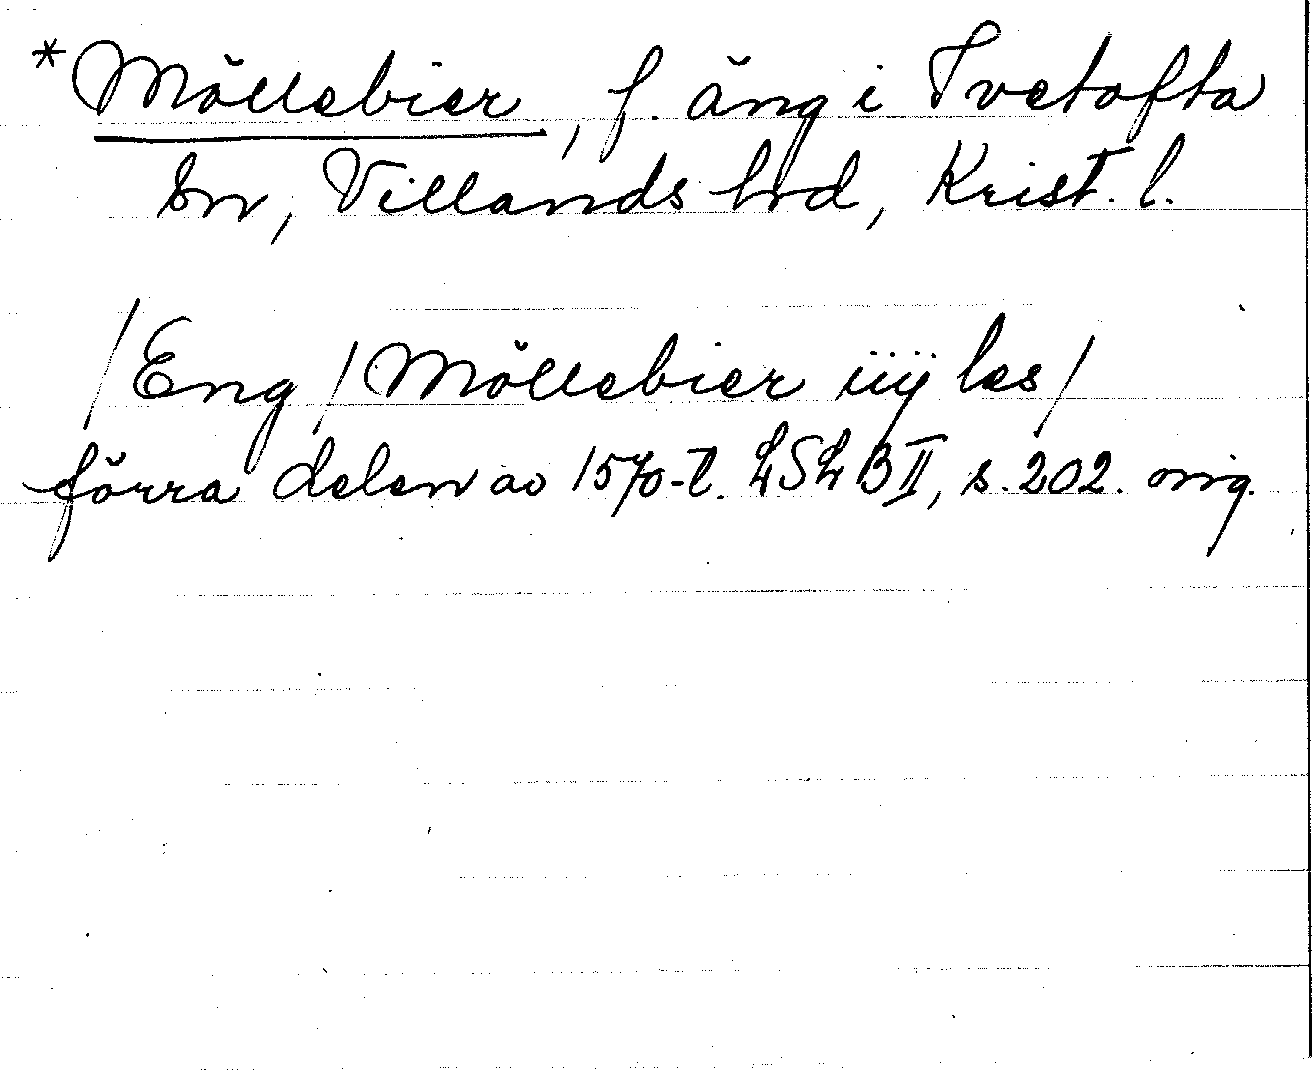 *Möllebier, f. äng i Tvetofta
sn, Villands hrd, Krist. l.
/Eng/Möllebier iiij les/
förra delen av 1570-t. LSLB II, s. 202. orig.